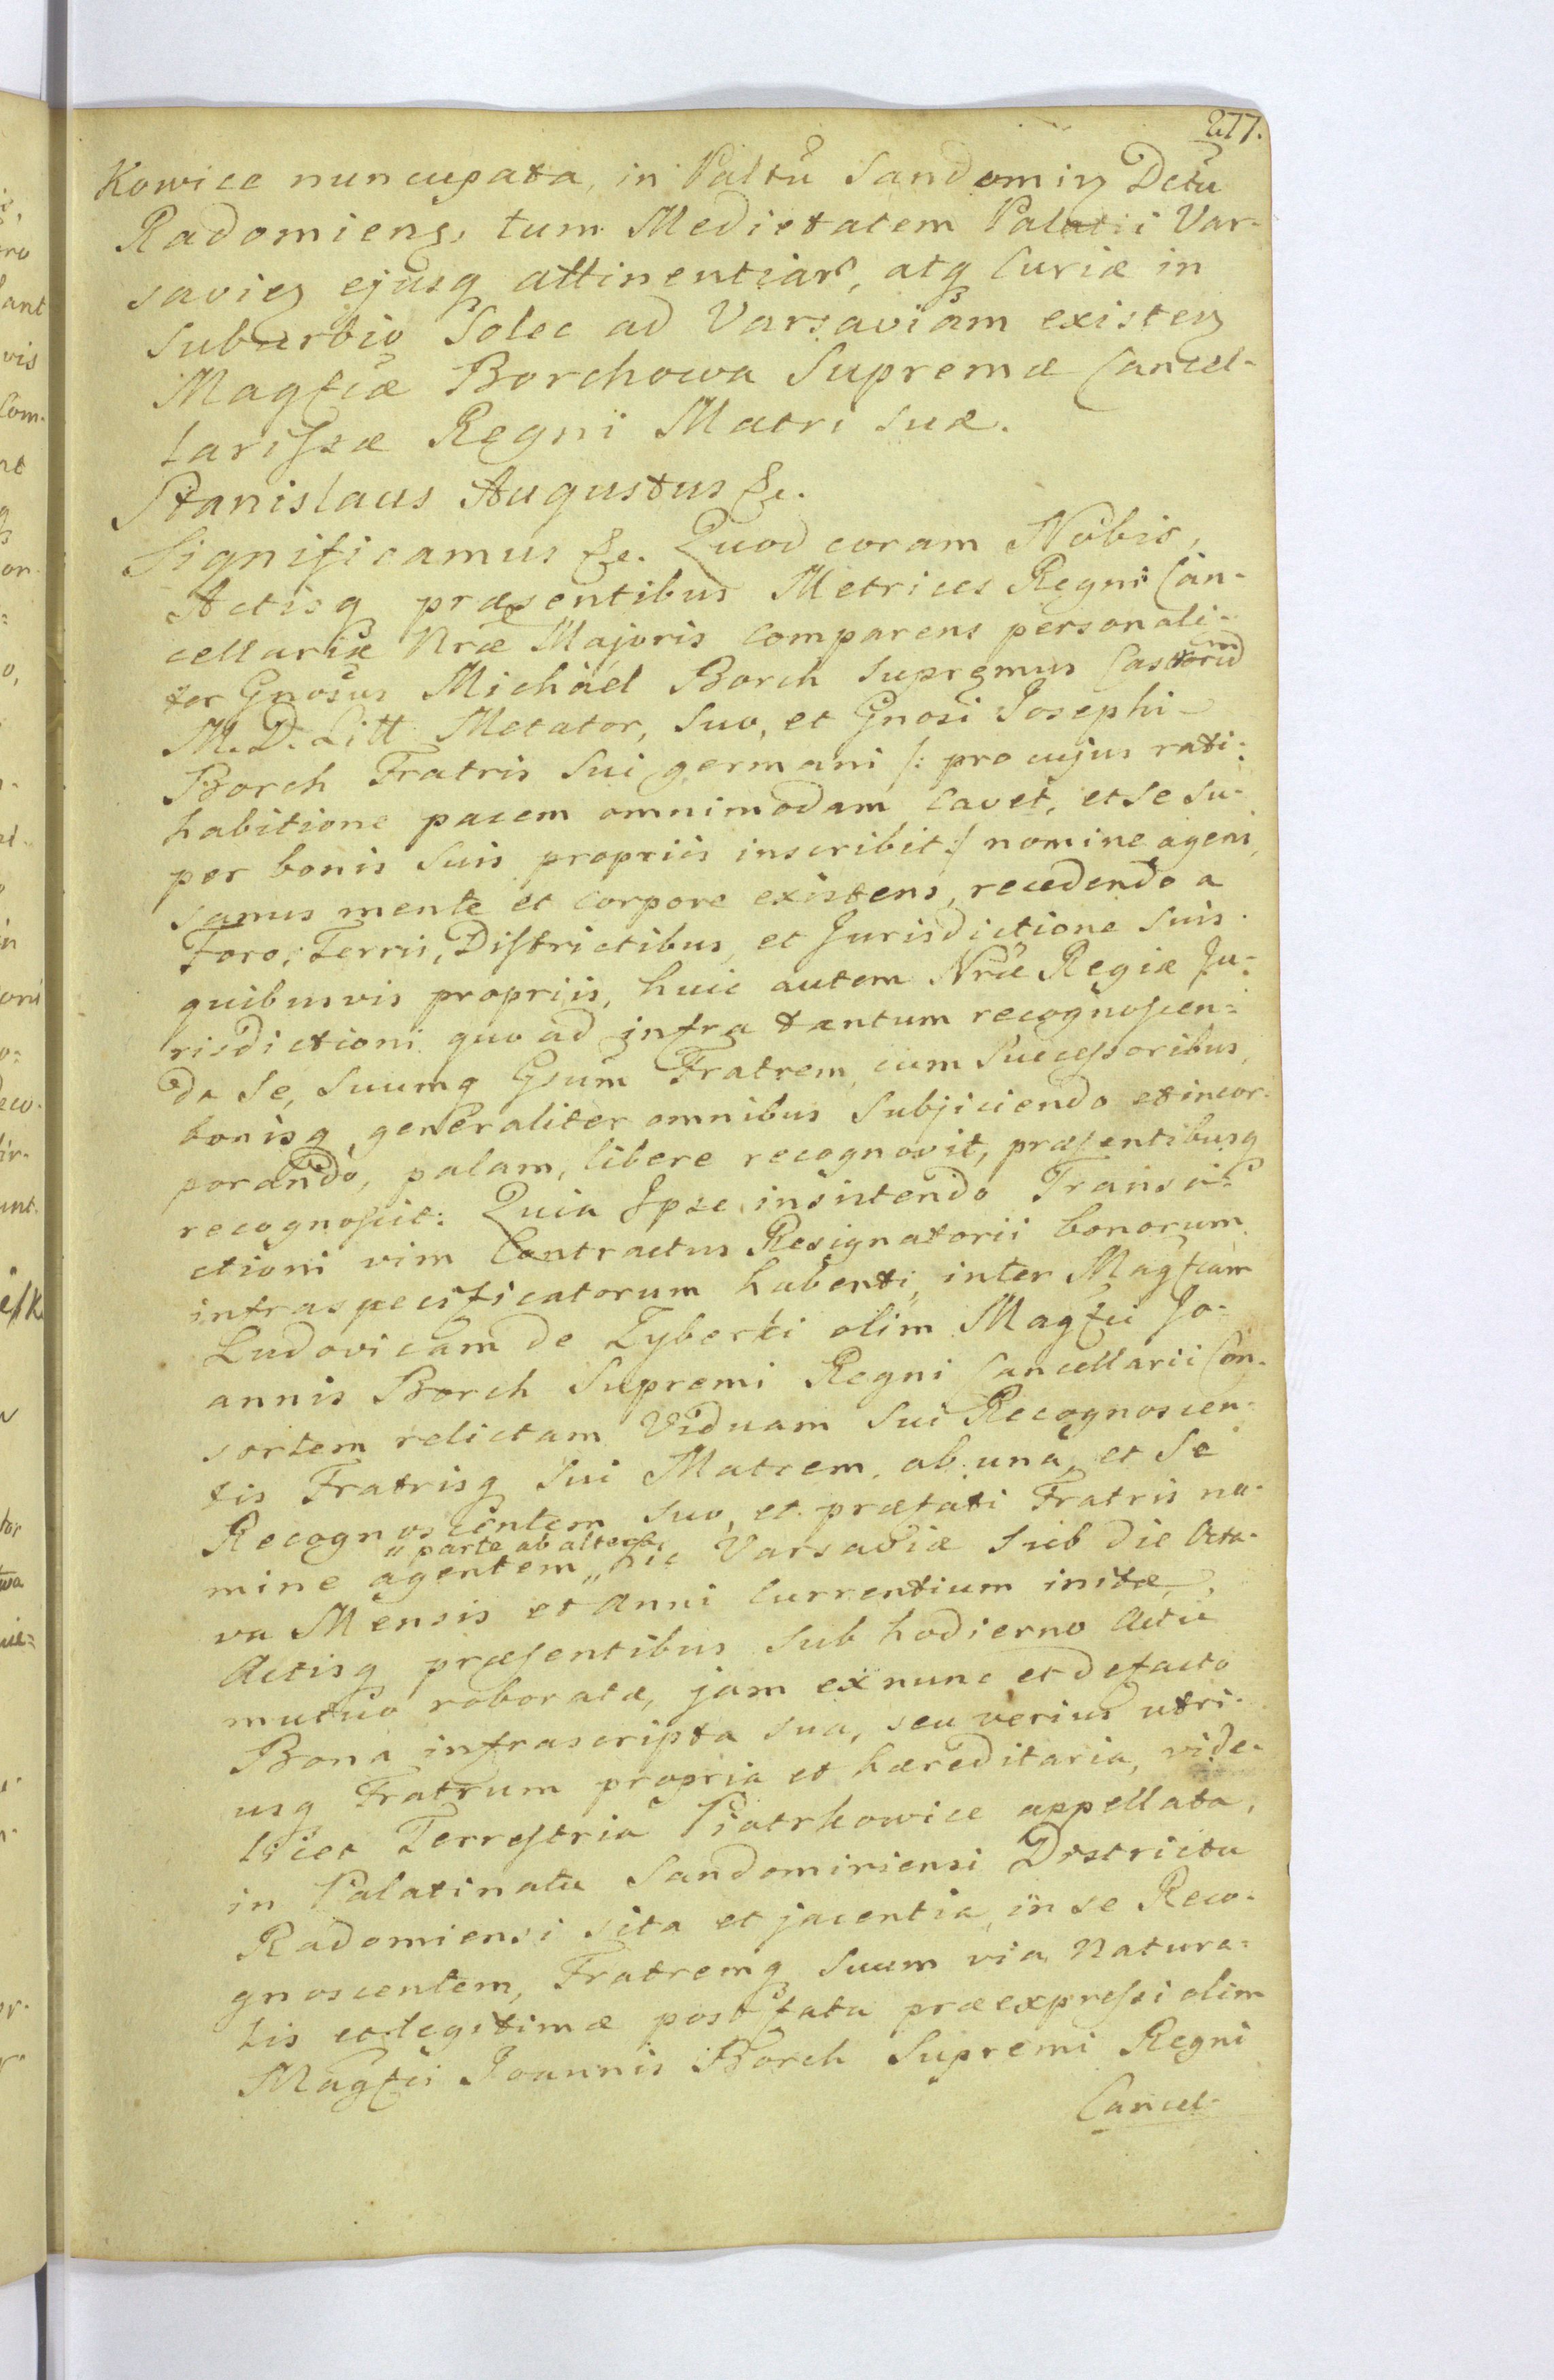 277.
Kowice nuncupata, in Paltu Sandomirz Dctu
Radomiens, tum Medietatem Palatii Var-
saviez ejusq attinentiar, atq Curiæ in
Suburbio Solec ad Varsaviam existez
Magfcæ Borchowa Supremæ Cancel-
lariſsæ Regni Matri suæ.
Stanislaus Augustus &c.
Significamus &c. Quod coram Nobis,
Actisq præsentibus Metrices Regni Can-
cellariæ Nræ Majoris comparens personali-
ter Gnosus Michael Borch Supremus Castrorum
M. D. Litt. Metator, suo, et Gnosi Josephi
Borch Fratris Sui germani /: pro cujus rati-
habitione pacem omnimodam cavet, et se su-
per bonis suis propriis inscribit :/ nomine agens,
sanus mente et corpore existens, recedendo a
Foro, Terris, Diſtrictibus, et Jurisdictione suis
quibusvis propriis, huic autem Nræ Regiæ Ju-
risdictioni quoad infra tantum recognoſcen-
da se, suumq Gsum Fratrem, cum Succeſsoribus,
bonisq generaliter omnibus subjiciendo et incor-
porando, palam, libere recognovit, præſentibusq
recognoſcit: Quia Ipse insistendo Transa-
ctioni vim Contractus Resignatorii bonorum
infraspecificatorum habenti, inter Magfcam
Ludovicam de Zyberki olim Magfci Jo-
annis Borch Supremi Regni Cancellarii Con-
sortem relictam Viduam sui Recognoscen-
tis Fratrisq sui Matrem, ab una, et Se
Recognoscentem suo, et præfati Fratris no-
mine agentem „ parte ab altera, „ hic Varsaviæ sub die Octa-
va Mensis et Anni currentium initæ,
Actisq præſentibus sub hodierno Actu
mutuo roboratæ, jam ex nunc et defacto
Bona infrascripta sua, seu verius utri-
usq Fratrum propria et hæreditaria, vide-
licet Terreſtria Piatrkowice appellata,
in Palatinatu Sandomiriensi Districtu
Radomiensi sita et jacentia, in se Reco-
gnoscentem, Fratremq suum via natura-
lis et legitimæ post fata præexpreſsi olim
Magfci Joannis Borch Supremi Regni
Cancel-